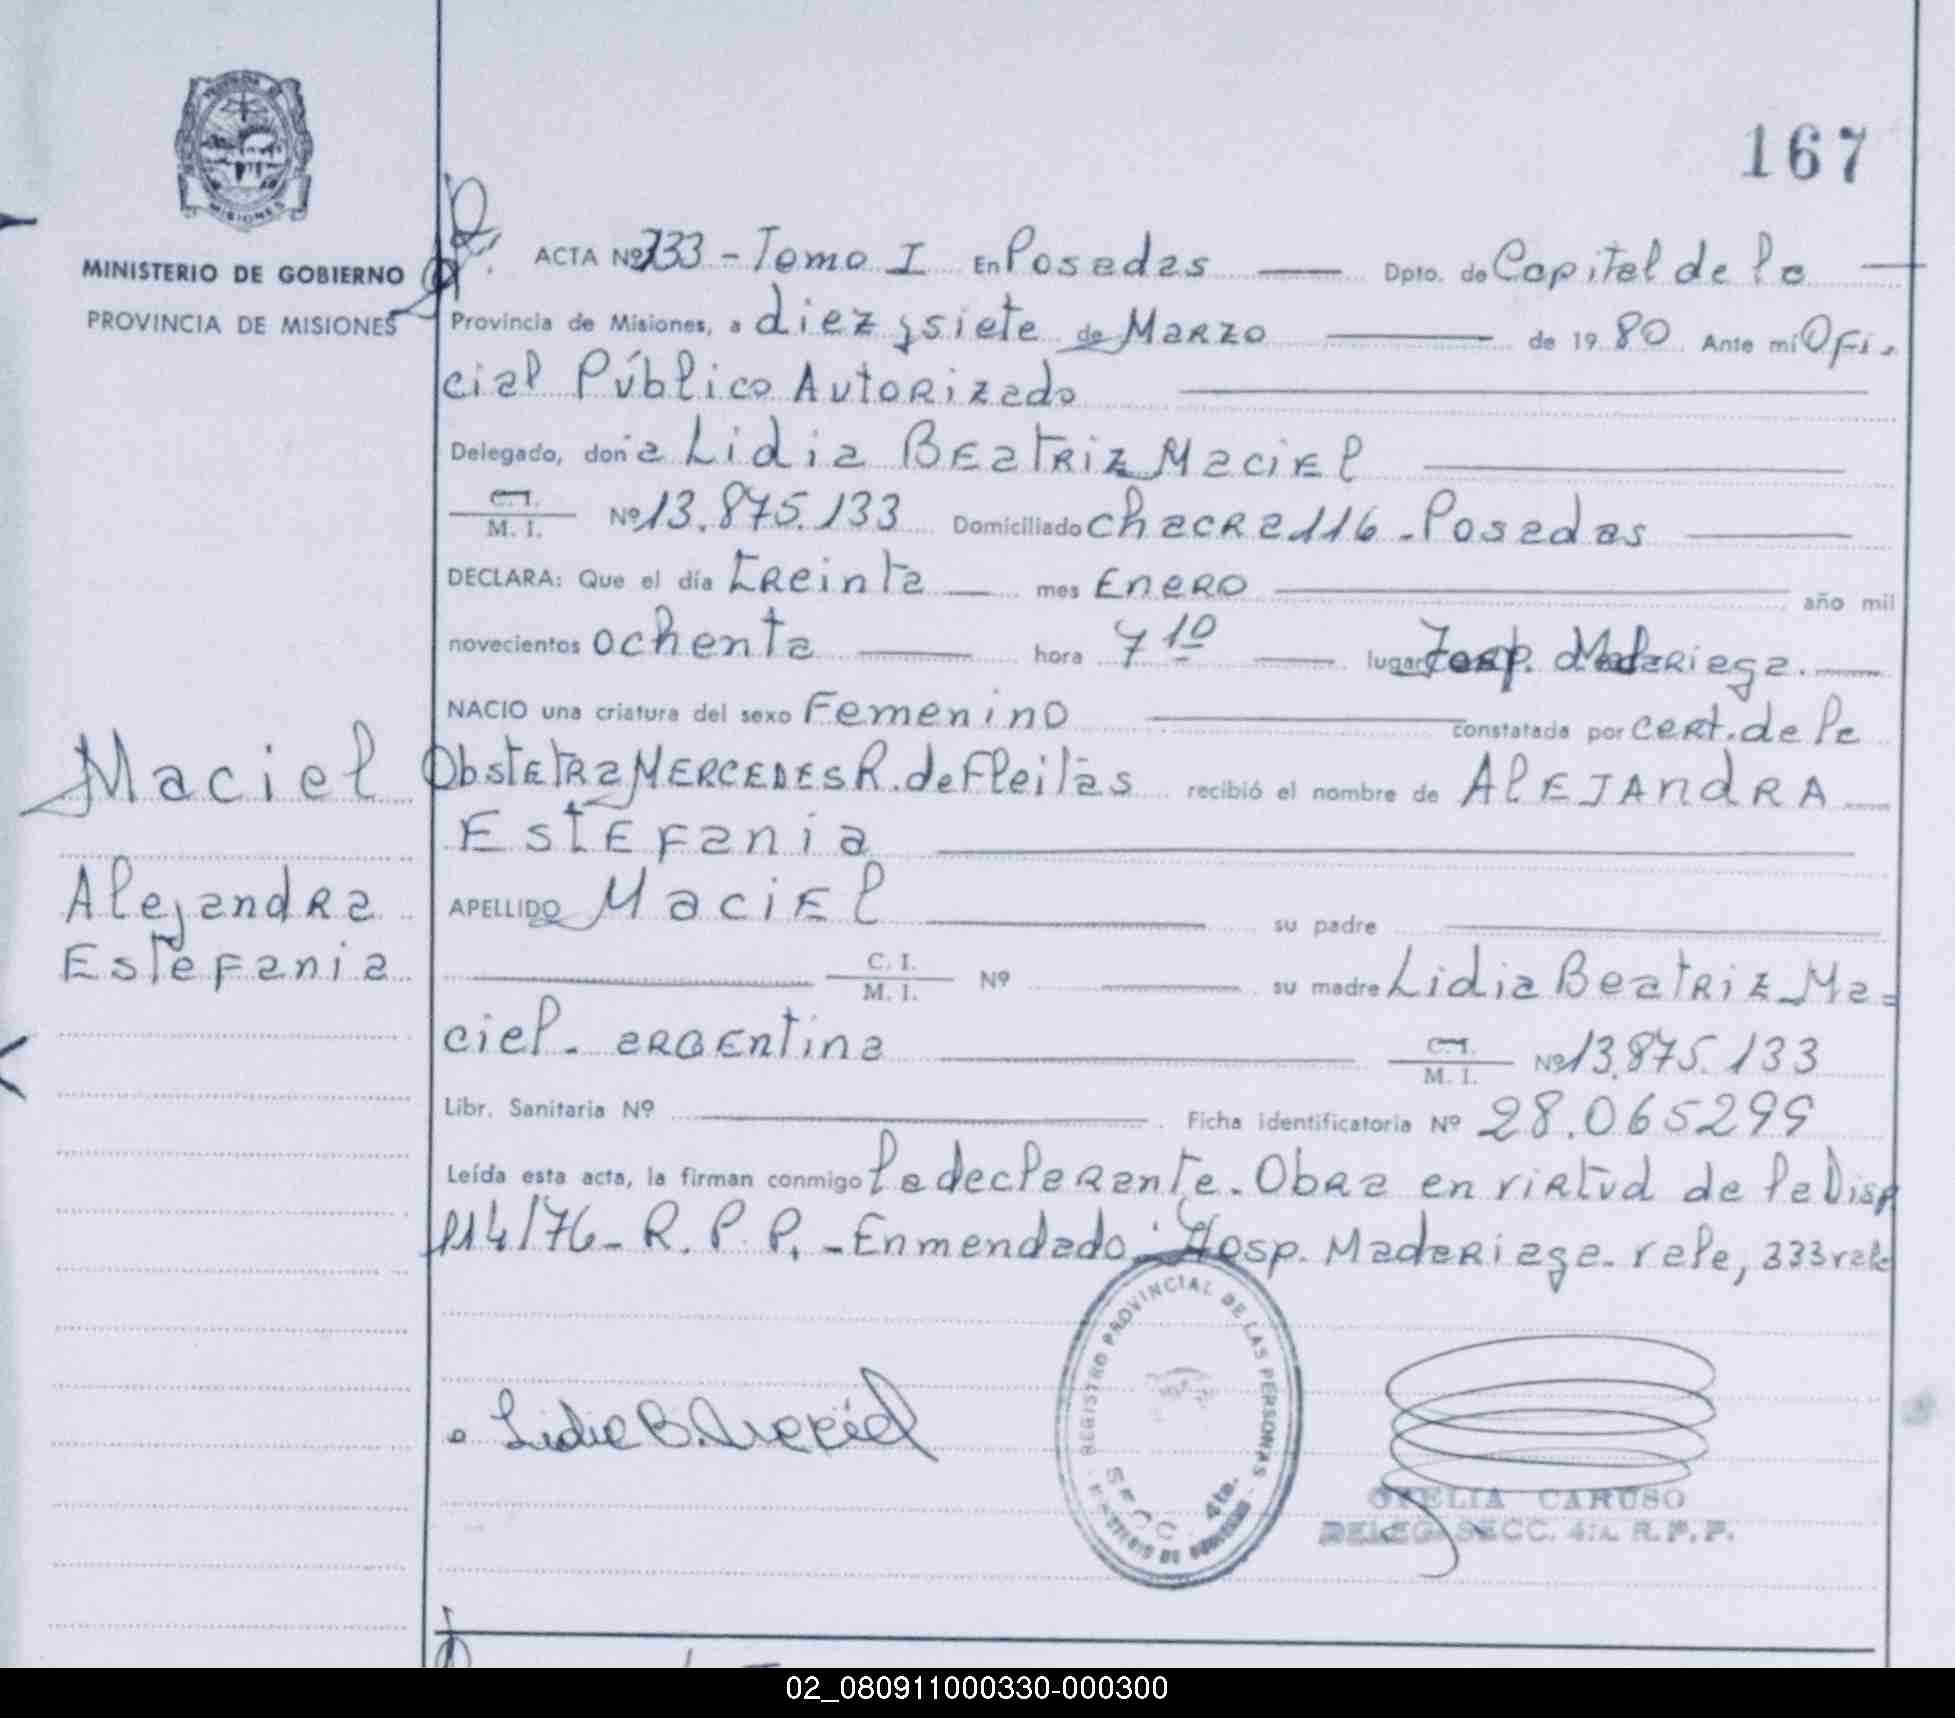 167
MINISTERIO DE GOBIERNO
PROVINCIA DE MISIONES
ACTA Nº 333 - Tomo I En Posadas Dpto. de Capital de la
Provincia de Misiones, a diez y siete de Marzo de 1980 Ante mí Ofi-
cial Público Autorizado
Delegado, doña Lidia Beatriz Maciel
C. I.
M. I. Nº 13.875.133 Domiciliado chacra 116 - Posadas
DECLARA: Que el día treinta mes Enero año mil
novecientos ochenta hora 7 10 lugar Hosp. Madariaga.
NACIO una criatura del sexo Femenino constatada por cert. de la
Obstetra Mercedes R. de Fleitas recibió el nombre de Alejandra
Estefania
APELLIDO Maciel su padre
C. I.
M. I. Nº su madre Lidia Beatriz Ma=
ciel - argentina C. I.
M. I. Nº 13.875.133
Libr. Sanitaria Nº Ficha identificatoria Nº 28.065299
Leída esta acta, la firman conmigo la declarante. Obra en virtud de la Disp
114/76 - R. P. P. - Enmendado: Hosp. Madariaga. vale, 333 vale
Maciel
Alejandra
Estefania
Lidia B. Maciel
REGISTRO PROVINCIAL DE LAS PERSONAS
SECC. 4ta.
OFELIA CARUSO
DELEG. SECC. 4ta. R.P.P.
MISIONES
02_080911000330-000300